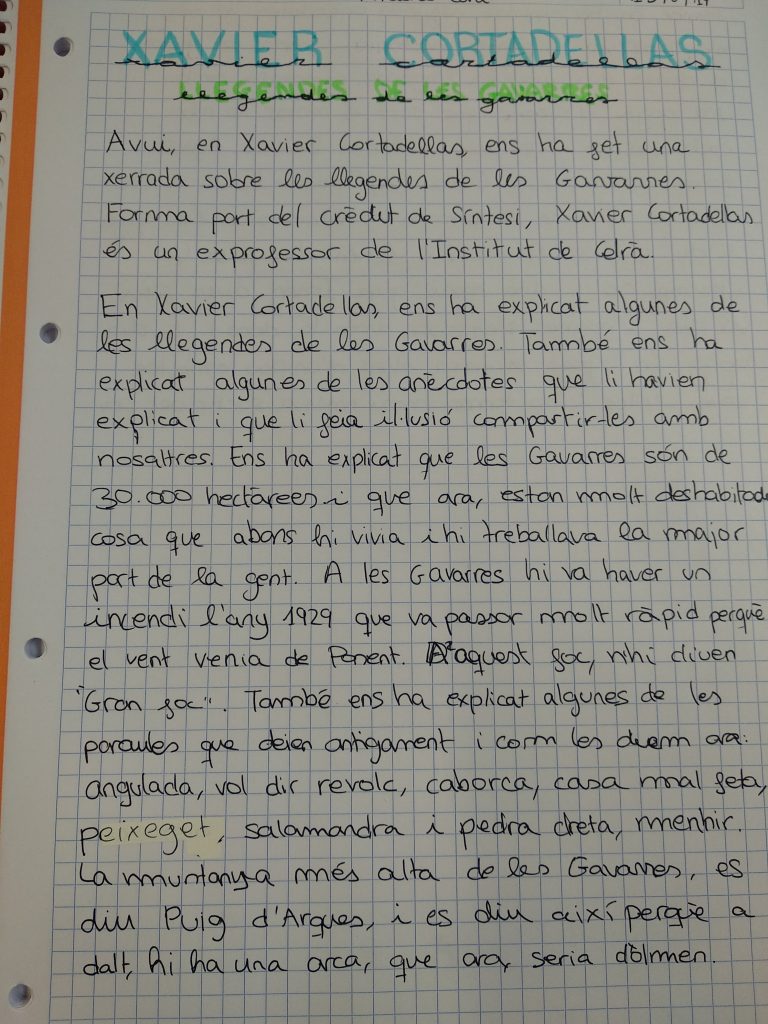 XAVIER CORTADELLAS
LLEGENDES DE LES GAVARRES
Avui, en Xavier Cortadellas, ens ha fet una
xerrada sobre les llegendes de les Gavarres.
Forma part del crèdit de síntesi, Xavier Cortadellas
és un exprofessor de l'Institut de Celrà.
En Xavier Cortadellas, ens ha explicat algunes de
les llegendes de les Gavarres. També ens ha
explicat algunes de les anècdotes que li havien
explicat i que li feia il·lusió compartir-les amb
nosaltres. Ens ha explicat que les Gavarres són de
30.000 hectàrees i que ara, estan molt deshabitades
cosa que abans hi vivia i hi treballava la major
part de la gent. A les Gavarres hi va haver un
incendi l'any 1929 que va passar molt ràpid perquè
el vent venia de Ponent. D'aquest foc, n'hi diuen
"Gran foc". També ens ha explicat algunes de les
paraules que deien antigament i com les diem ara:
angulada, vol dir revolc, caborca, casa mal feta,
peixeget, salamandra i pedra dreta, menhir.
La muntanya més alta de les Gavarres, es
diu Puig d'Arques, i es diu així perquè a
dalt, hi ha una arca, que ara, seria dòlmen.